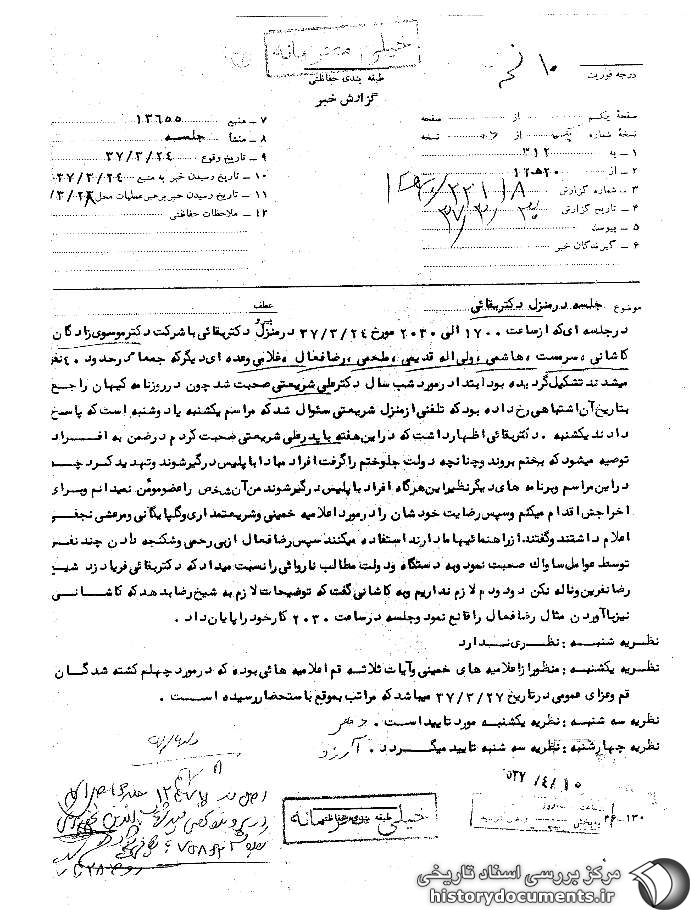 خیلی محرمانه
طبقه بندی حفاظتی
گزارش خبر
درجه فوریت
صفحه یکم از صفحه
نسخه شماره از نسخه
۱ ـ به ۳۱۲
۲ ـ از ۱۲۰۵۲۰
۳ ـ شماره گزارش
۴ ـ تاریخ گزارش
۵ ـ پیوست
۶ ـ گیرندگان خبر
۷ ـ منبع ۱۳۶۵۵
۸ ـ منشأ جلسه
۹ ـ تاریخ وقوع ۳۷/۳/۲۴
۱۰ ـ تاریخ رسیدن خبر به منبع ۳۷/۳/۲۴
۱۱ ـ تاریخ رسیدن خبر برهبر عملیات محل
۱۲ ـ ملاحظات حفاظتی
موضوع جلسه در منزل دکتر بقائی
عطف
در جلسه ای که از ساعت ۱۷۰۰ الی ۲۰۳۰ مورخ ۳۷/۳/۲۴ در منزل دکتر بقائی با شرکت دکتر موسوی زادگان
کاشانی، سررست، هاشمی، ولی اله قدیمی، طحمی، رضا فعال، غلابی وعده ای دیگر که جمعا در حدود ۴۰ نفر
میشدند تشکیل گردیده بود ابتدا در مورد شب سال دکتر علی شریعتی صحبت شد چون در روزنامه کیهان راجع
بتاریخ آن اشتباهی رخ داده بود که تلفنی از منزل شریعتی سئوال شد که مراسم یکشنبه یا دوشنبه است که پاسخ
دادند یکشنبه ، دکتر بقائی اظهار داشت که در این هفته با پدر علی شریعتی صحبت کردم در ضمن به افراد
توصیه میشود که بختم بروند و چنانچه دولت جلو ختم را گرفت افراد مبادا با پلیس درگیر شوند و تهدید کرد چه
در این مراسم وبرنامه های دیگر نظیر این هرگاه افراد با پلیس درگیر شوند من آن شخص را عضو مومن نمیدانم وبرای
اخراجش اقدام میکنم وسپس رضایت خودشان را در مورد اعلامیه خمینی وشریعتمداری وگلپایگانی ومرعشی نجفی
اعلام داشتند وگفتند از راهنمائیها مدارند استفاده میکنند سپس رضا فعال از بی رحمی وشکنجه دادن چند نفر
توسط عوامل ساواک صحبت نمود و به دستگاه ودولت مطالب ناروائی را نسبت میداد که دکتر بقائی فریاد زد شیخ
رضا نفرین وناله نکن دود ودم لازم نداریم و به کاشانی گفت که توضیحات لازم به شیخ رضا بدهد که کاشانی
نیز با آوردن مثال رضا فعال را قانع نمود وجلسه در ساعت ۲۰۳۰ کار خود را پایان داد .
نظریه شنبه : نظری ندارد
نظریه یکشنبه : منظور از اعلامیه های خمینی وآیات ثلاثه قم اعلامیه هائی بوده که در مورد چهلم کشته شدگان
قم وعزای عمومی در تاریخ ۳۷/۳/۲۷ میباشد که مراتب بموقع باستحضار رسیده است .
نظریه سه شنبه : نظریه یکشنبه مورد تایید است .
نظریه چهارشنبه : نظریه سه شنبه تایید میگردد . آرزو
خیلی محرمانه
طبقه بندی حفاظتی
۳۶-۱۳۰
مرکز بررسی اسناد تاریخی
historydocuments.ir